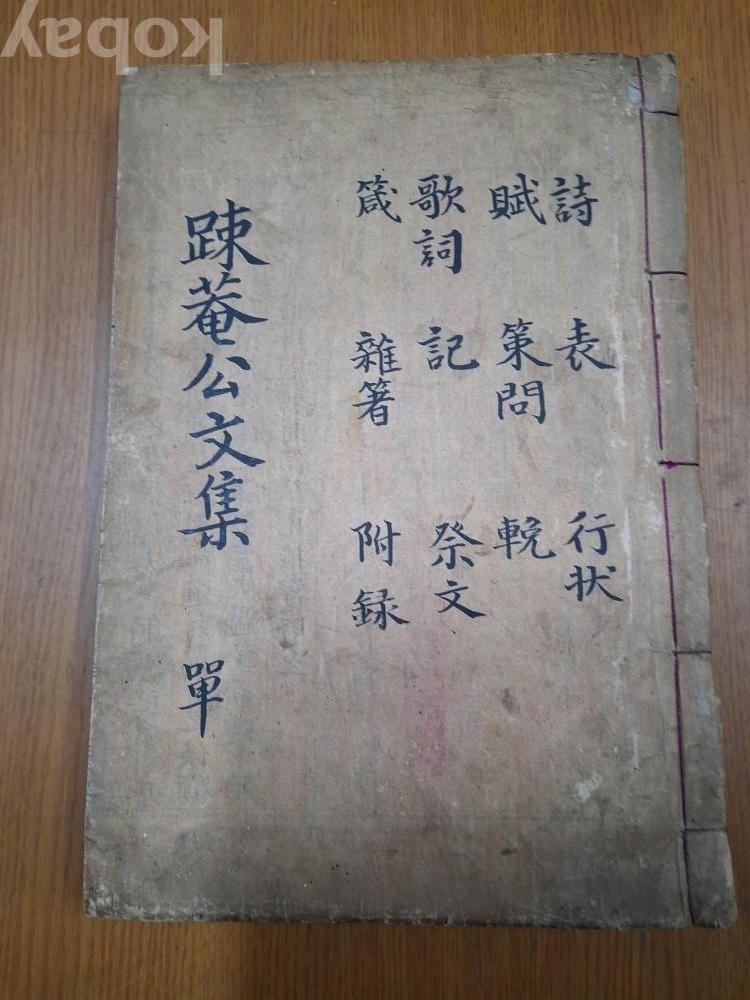 詩 表 行状
賦 策問 輓
歌詞 記 祭文
箴 雜箸 附録
踈菴公文集 單
kobay